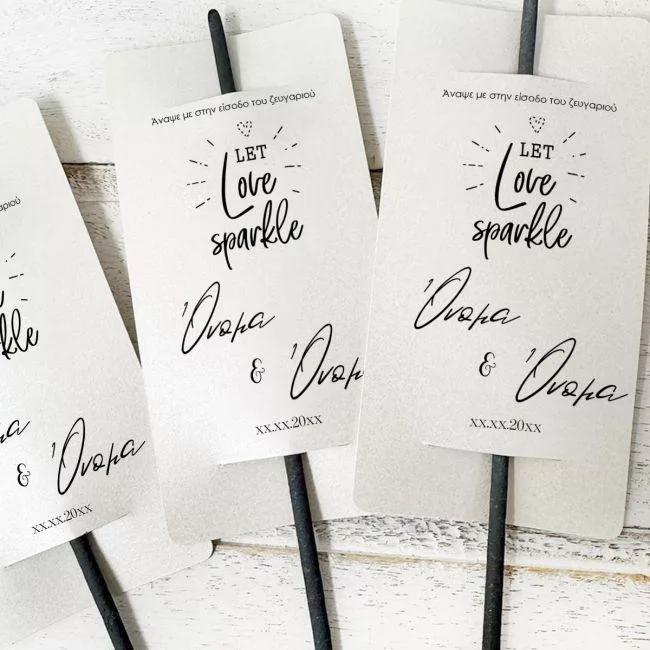 αριού
kle
μα
& Όνομα
xx.xx.20xx
Άναψε με στην είσοδο του ζευγαριού
LET
Love
sparkle
Όνομα
& Όνομ
xx.xx.20xx
Άναψε με στην είσοδο του ζευγαριού
LET
Love
sparkle
Όνομα
& Όνομα
xx.xx.20xx